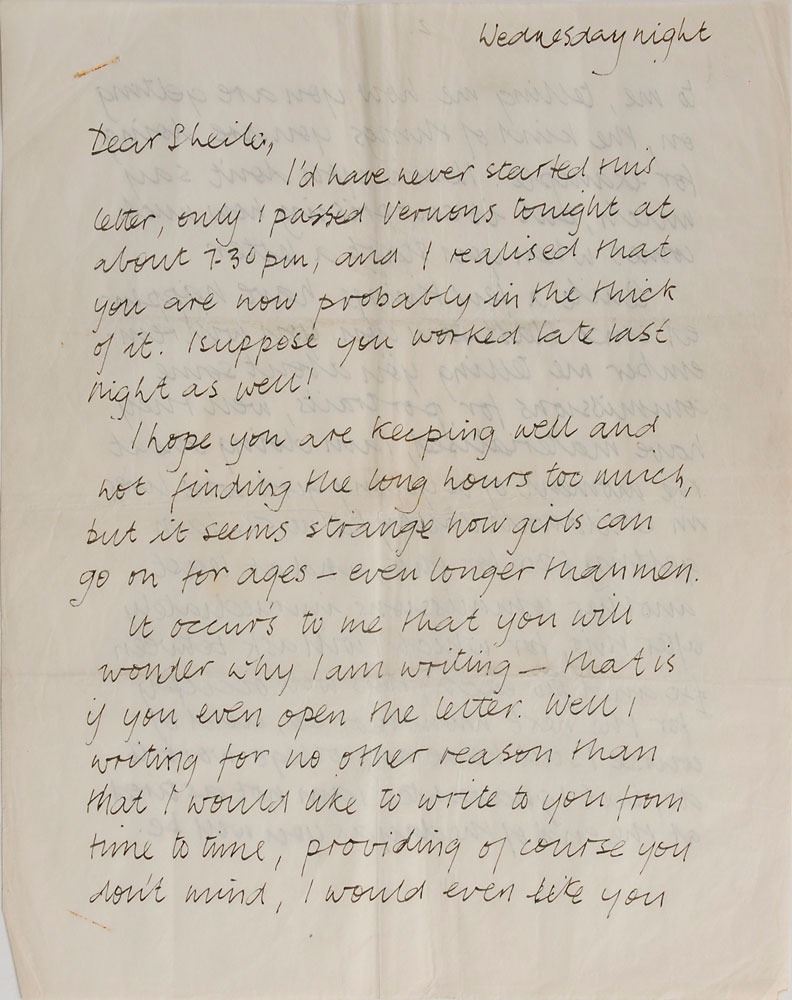 Wednesday night
Dear Sheila,
I'd have never started this
letter, only I passed Vernons tonight at
about 7-30pm, and I realised that
you are now probably in the thick
of it. I suppose you worked late last
night as well!
I hope you are keeping well and
not finding the long hours too much,
but it seems strange how girls can
go on for ages – even longer than men.
It occurs to me that you will
wonder why I am writing – that is
if you even open the letter. Well I
writing for no other reason than
that I would like to write to you from
time to time, providing of course you
don't mind, I would even like you